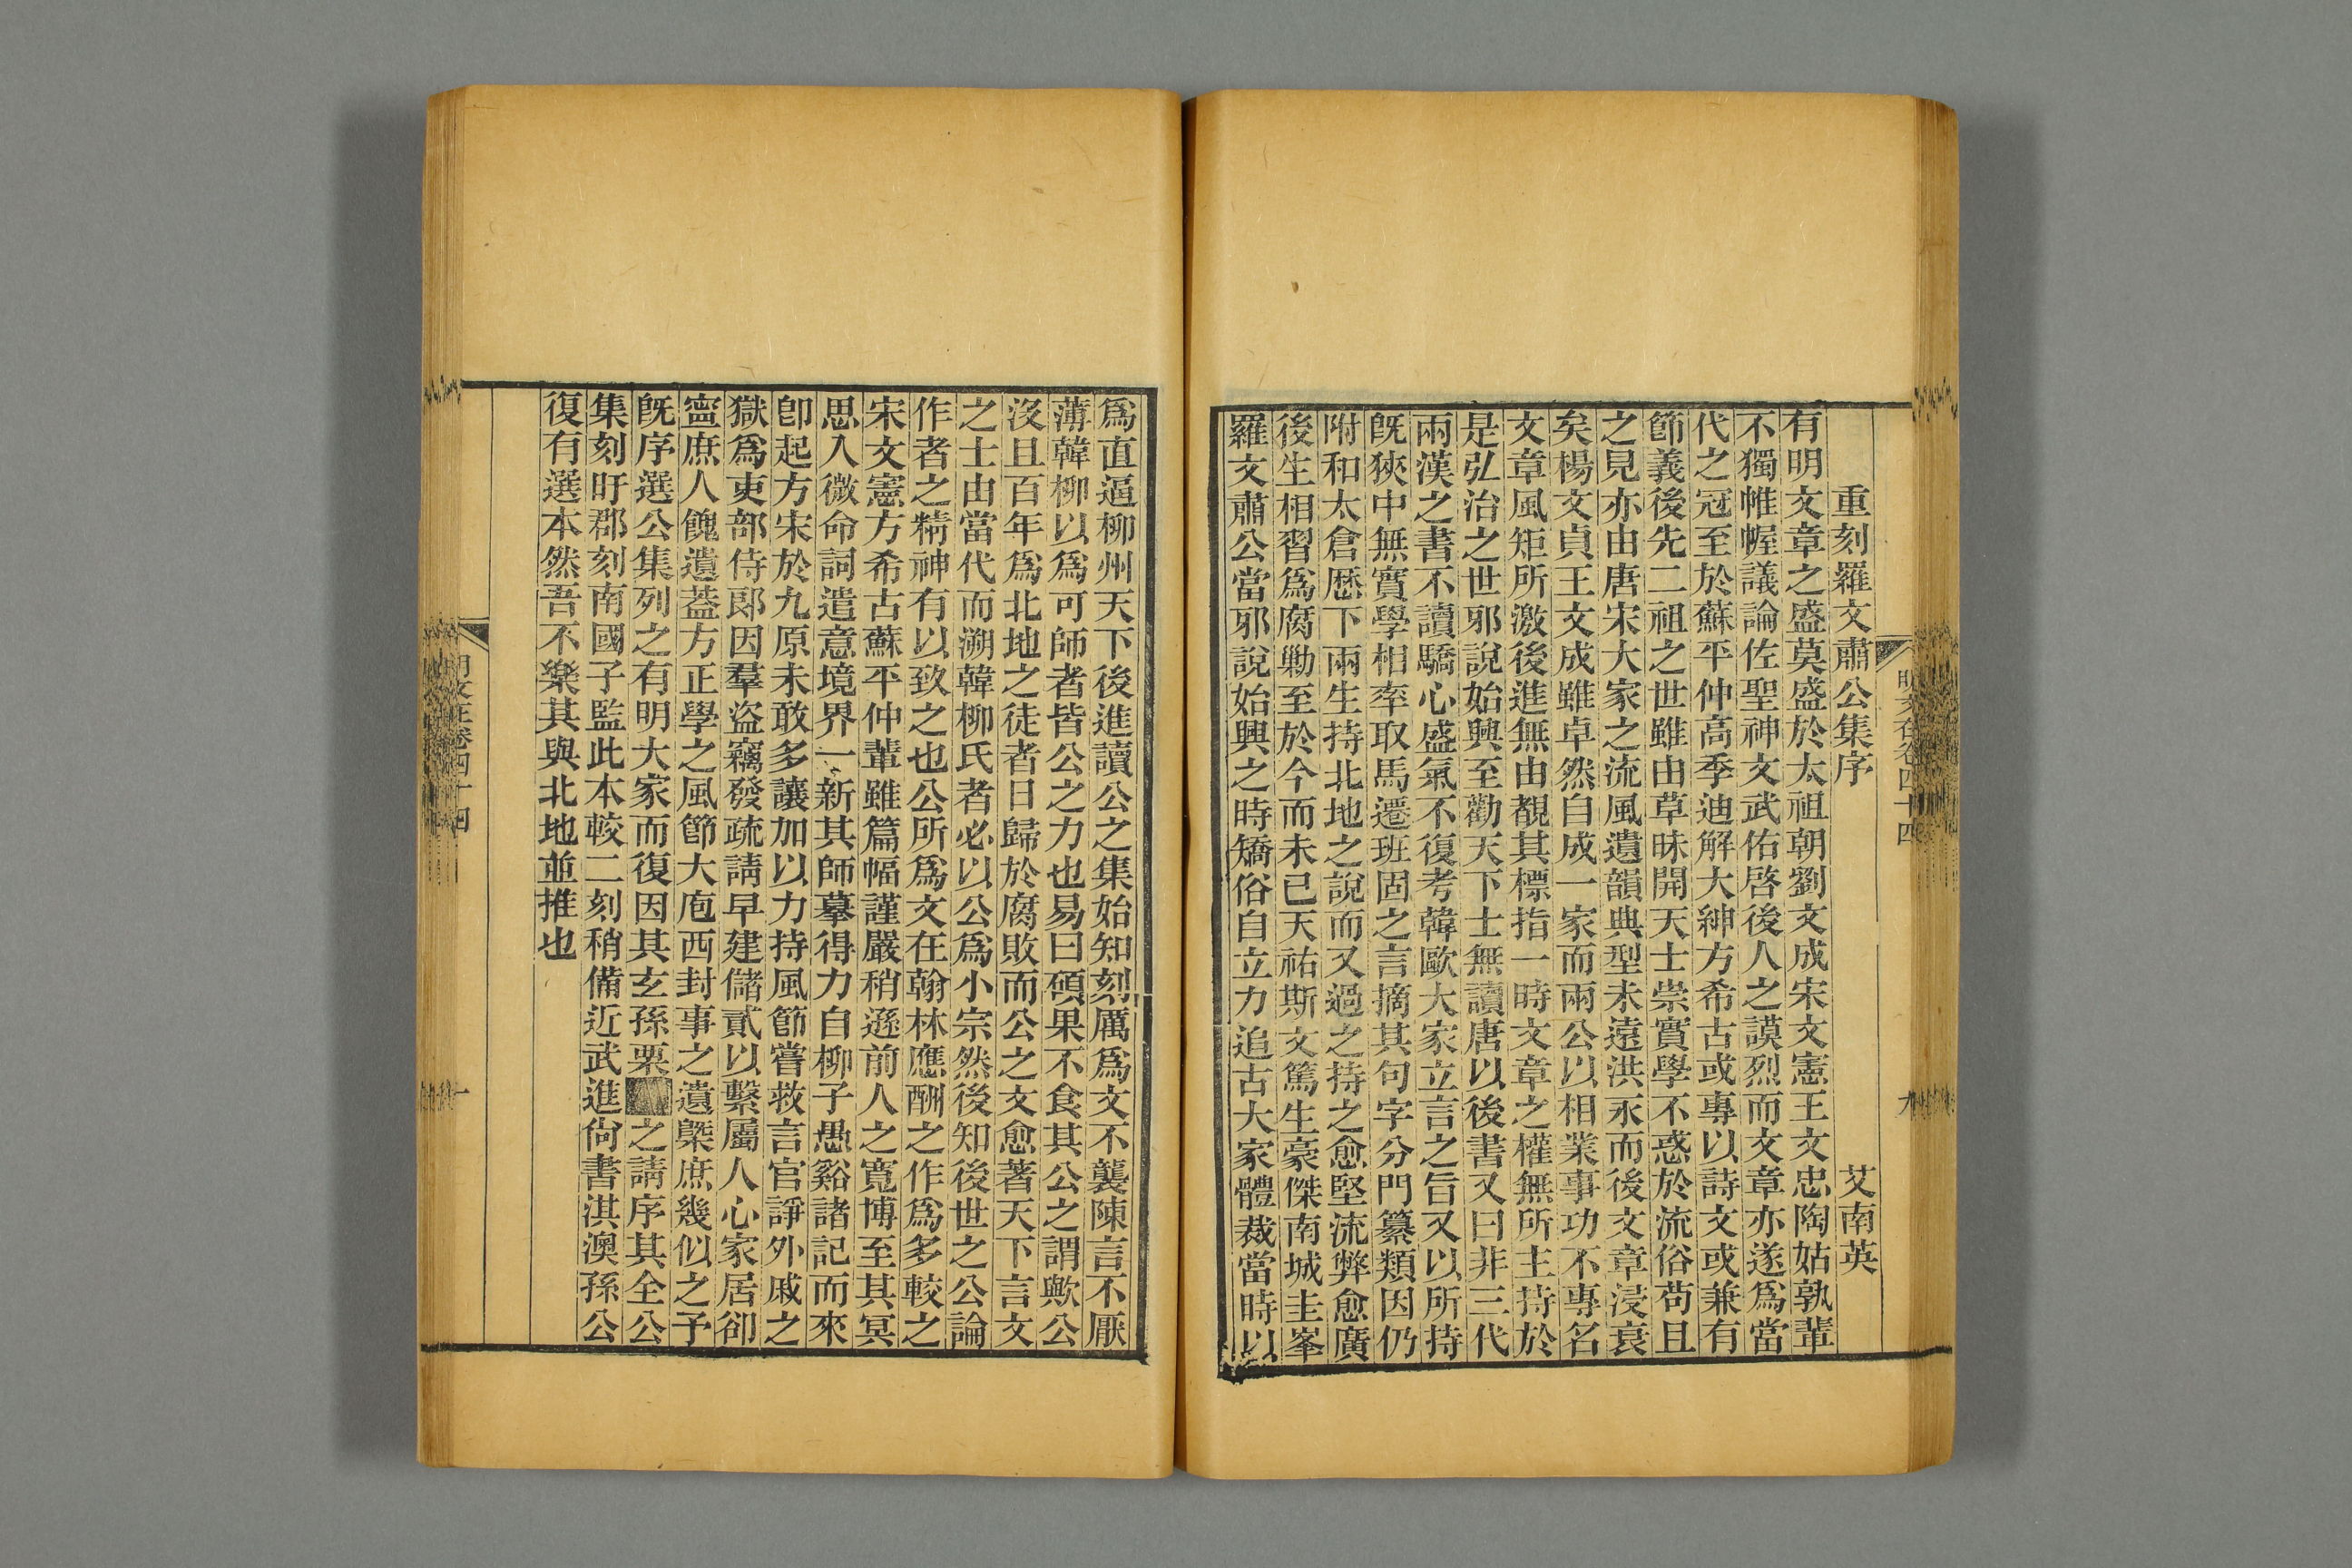 重刻羅文肅公集序
艾南英
有明文章之盛莫盛於太祖朝劉文成宋文憲王文忠陶姑孰輩
不獨帷幄議論佐聖神文武佑啓後人之謨烈而文章亦遂爲當
代之冠至於蘇平仲高季迪解大紳方希古或專以詩文或兼有
節義後先二祖之世雖由草昧開天士崇實學不惑於流俗苟且
之見亦由唐宋大家之流風遺韻典型未遠洪永而後文章浸衰
矣楊文貞王文成雖卓然自成一家而兩公以相業事功不專名
文章風矩所激後進無由覩其標指一時文章之權無所主持於
是弘治之世邪說始興至勸天下士無讀唐以後書又曰非三代
兩漢之書不讀驕心盛氣不復考韓歐大家立言之旨又以所持
旣狹中無實學相率取馬遷班固之言摘其句字分門纂類因仍
附和太倉歷下兩生持北地之說而又過之持之愈堅流弊愈廣
後生相習爲腐勦至於今而未已天祐斯文篤生豪傑南城圭峯
羅文肅公當邪說始興之時矯俗自立力追古大家體裁當時以
明文在卷四十四
九
爲直逼柳州天下後進讀公之集始知刻厲爲文不襲陳言不厭
薄韓柳以爲可師者皆公之力也易曰碩果不食其公之謂歟公
沒且百年爲北地之徒者日歸於腐敗而公之文愈著天下言文
之士由當代而溯韓柳氏者必以公爲小宗然後知後世之公論
作者之精神有以致之也公所爲文在翰林應酬之作爲多較之
宋文憲方希古蘇平仲輩雖篇幅謹嚴稍遜前人之寬博至其冥
思入微命詞遣意境界一新其師摹得力自柳子愚谿諸記而來
卽起方宋於九原未敢多讓加以力持風節嘗救言官諍外戚之
獄爲吏部侍郞因羣盜竊發疏請早建儲貳以繫屬人心家居卻
寧庶人餽遺葢方正學之風節大庖西封事之遺槩庶幾似之予
旣序選公集列之有明大家而復因其玄孫栗之請序其全公
集刻旴郡刻南國子監此本較二刻稍備近武進尙書淇澳孫公
復有選本然吾不樂其與北地並推也
明文在卷四十四